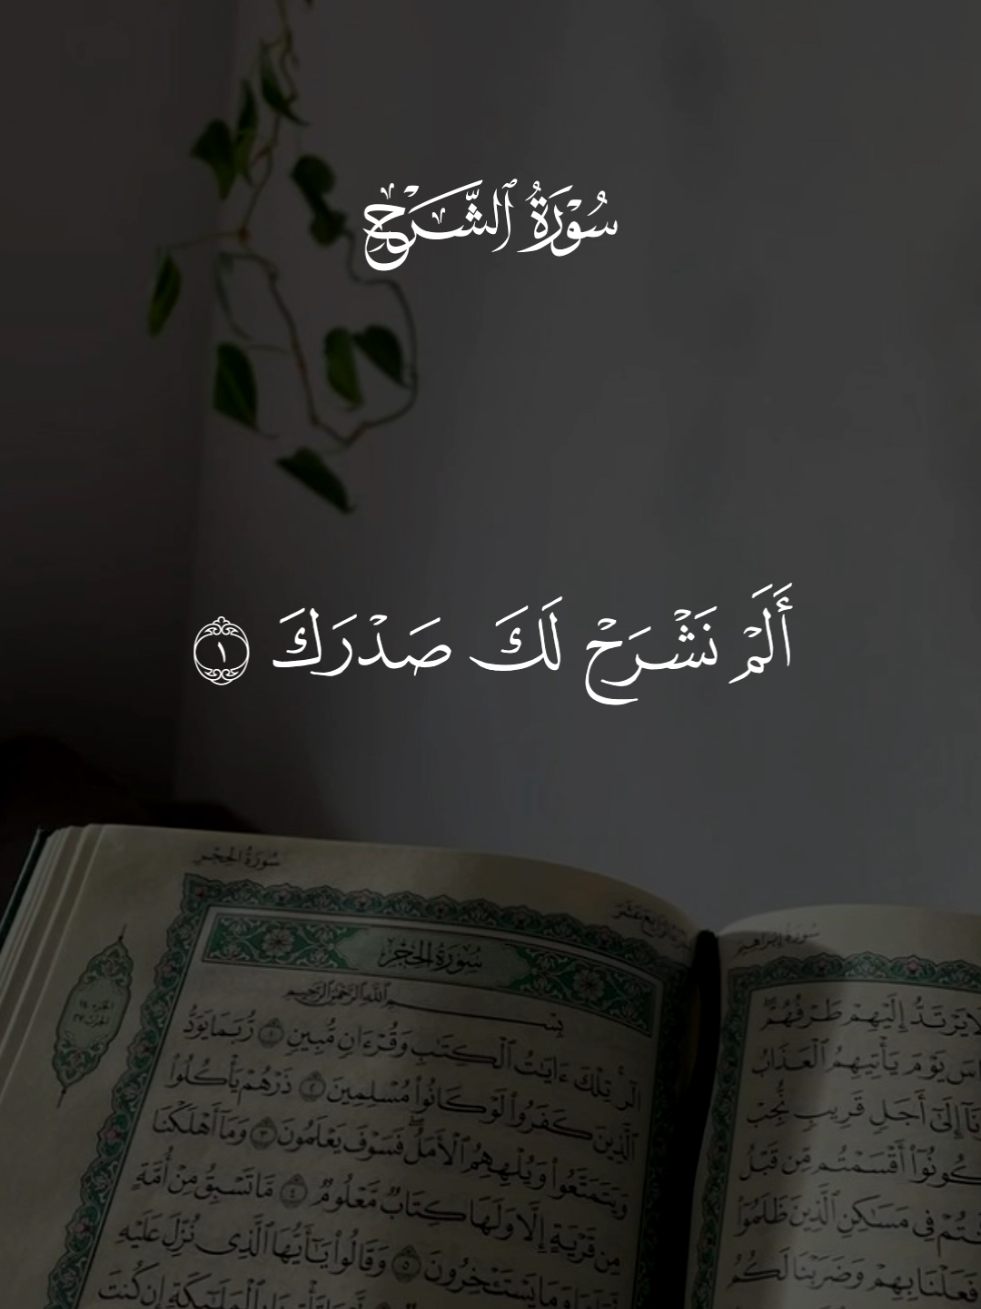 سُورَةُ ٱلشَّرْحِ
أَلَمْ نَشْرَحْ لَكَ صَدْرَكَ ١
سُورَةُ الحِجْر
سُورَةُ إِبْرَاهِيم
سُورَةُ الحِجْر
بِسْمِ اللَّهِ الرَّحْمَٰنِ الرَّحِيمِ
الٓر ۚ تِلْكَ ءَايَٰتُ ٱلْكِتَٰبِ وَقُرْءَانٍ مُّبِينٍ ١ رُّبَمَا يَوَدُّ
ٱلَّذِينَ كَفَرُوا۟ لَوْ كَانُوا۟ مُسْلِمِينَ ٢ ذَرْهُمْ يَأْكُلُوا۟
وَيَتَمَتَّعُوا۟ وَيُلْهِهِمُ ٱلْأَمَلُ ۖ فَسَوْفَ يَعْلَمُونَ ٣ وَمَآ أَهْلَكْنَا
مِن قَرْيَةٍ إِلَّا وَلَهَا كِتَابٌ مَّعْلُومٌ ٤ مَّا تَسْبِقُ مِنْ أُمَّةٍ
أَجَلَهَا وَمَا يَسْتَـْٔخِرُونَ ٥ وَقَالُوا۟ يَٰٓأَيُّهَا ٱلَّذِى نُزِّلَ عَلَيْهِ
لَا يَرْتَدُّ إِلَيْهِمْ طَرْفُهُمْ
يَوْمَ يَأْتِيهِمُ ٱلْعَذَابُ
إِلَىٰٓ أَجَلٍ قَرِيبٍ نُّجِبْ
أَقْسَمْتُم مِّن قَبْلُ
فِى مَسَٰكِنِ ٱلَّذِينَ ظَلَمُوٓا۟
فَعَلْنَا بِهِمْ وَضَرَبْنَا لَكُمُ